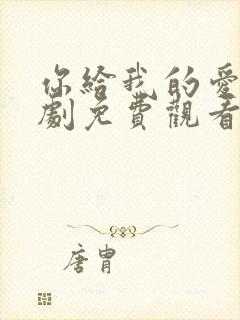 你給我的愛
劇免費觀看
唐胄